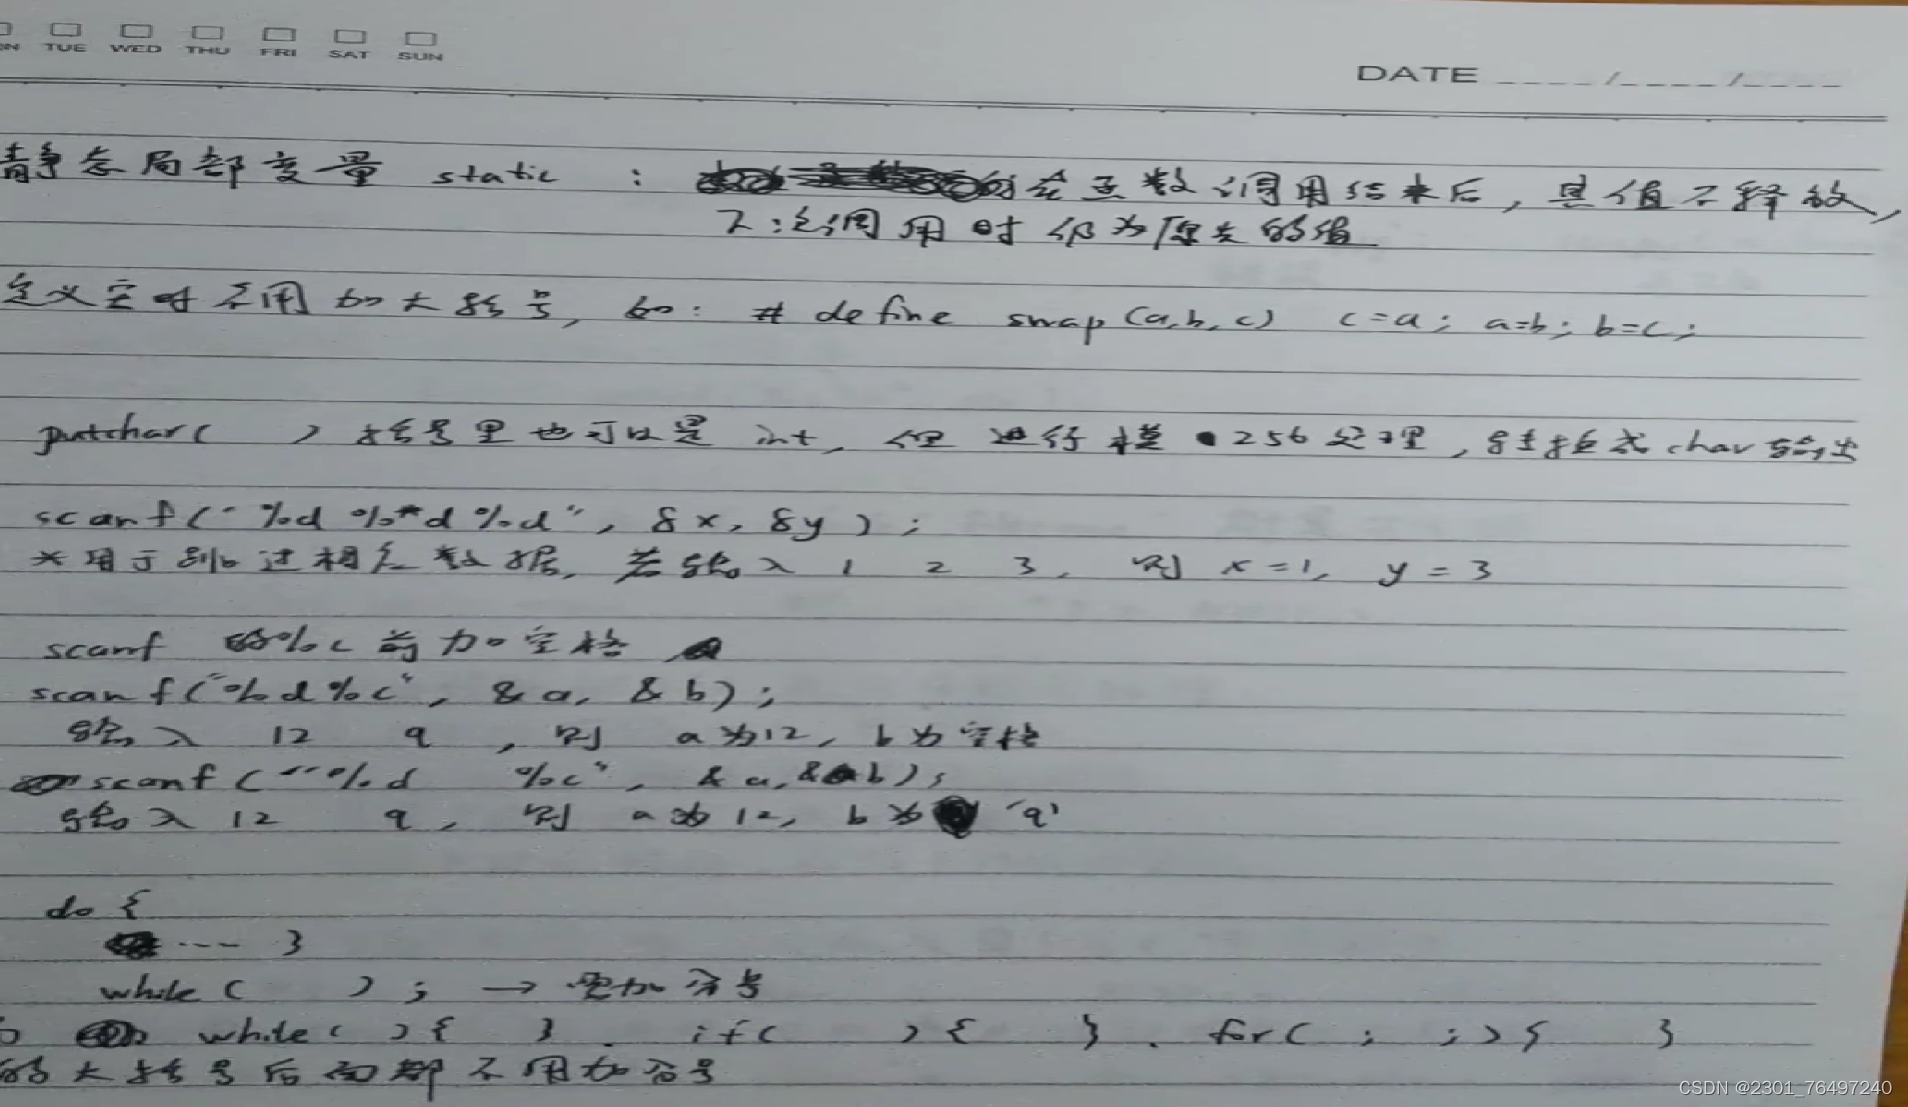 TUE WED THU FRI SAT SUN
DATE ____/____/____
静态局部变量 static : 在函数调用结束后，其值不释放，
下次调用时仍为原先的值
定义宏时不用加大括号，如： # define swap(a,b,c) c=a; a=b; b=c;
putchar( ) 括号里也可以是 int，但进行模256处理，转换成char输出
scanf("%d %*d %d", &x, &y);
*用于跳过相应数据，若输入 1 2 3，则 x=1, y=3
scanf 的%c前加空格
scanf("%d%c", &a, &b);
输入 12 q ，则 a为12，b为空格
scanf("%d %c", &a, &b);
输入 12 q，则 a为12，b为 'q'
do {
... }
while ( ) ; → 要加分号
while ( ) { } . if ( ) { } . for ( ; ; ) { }
的大括号后面都不用加分号
CSDN @2301_76497240